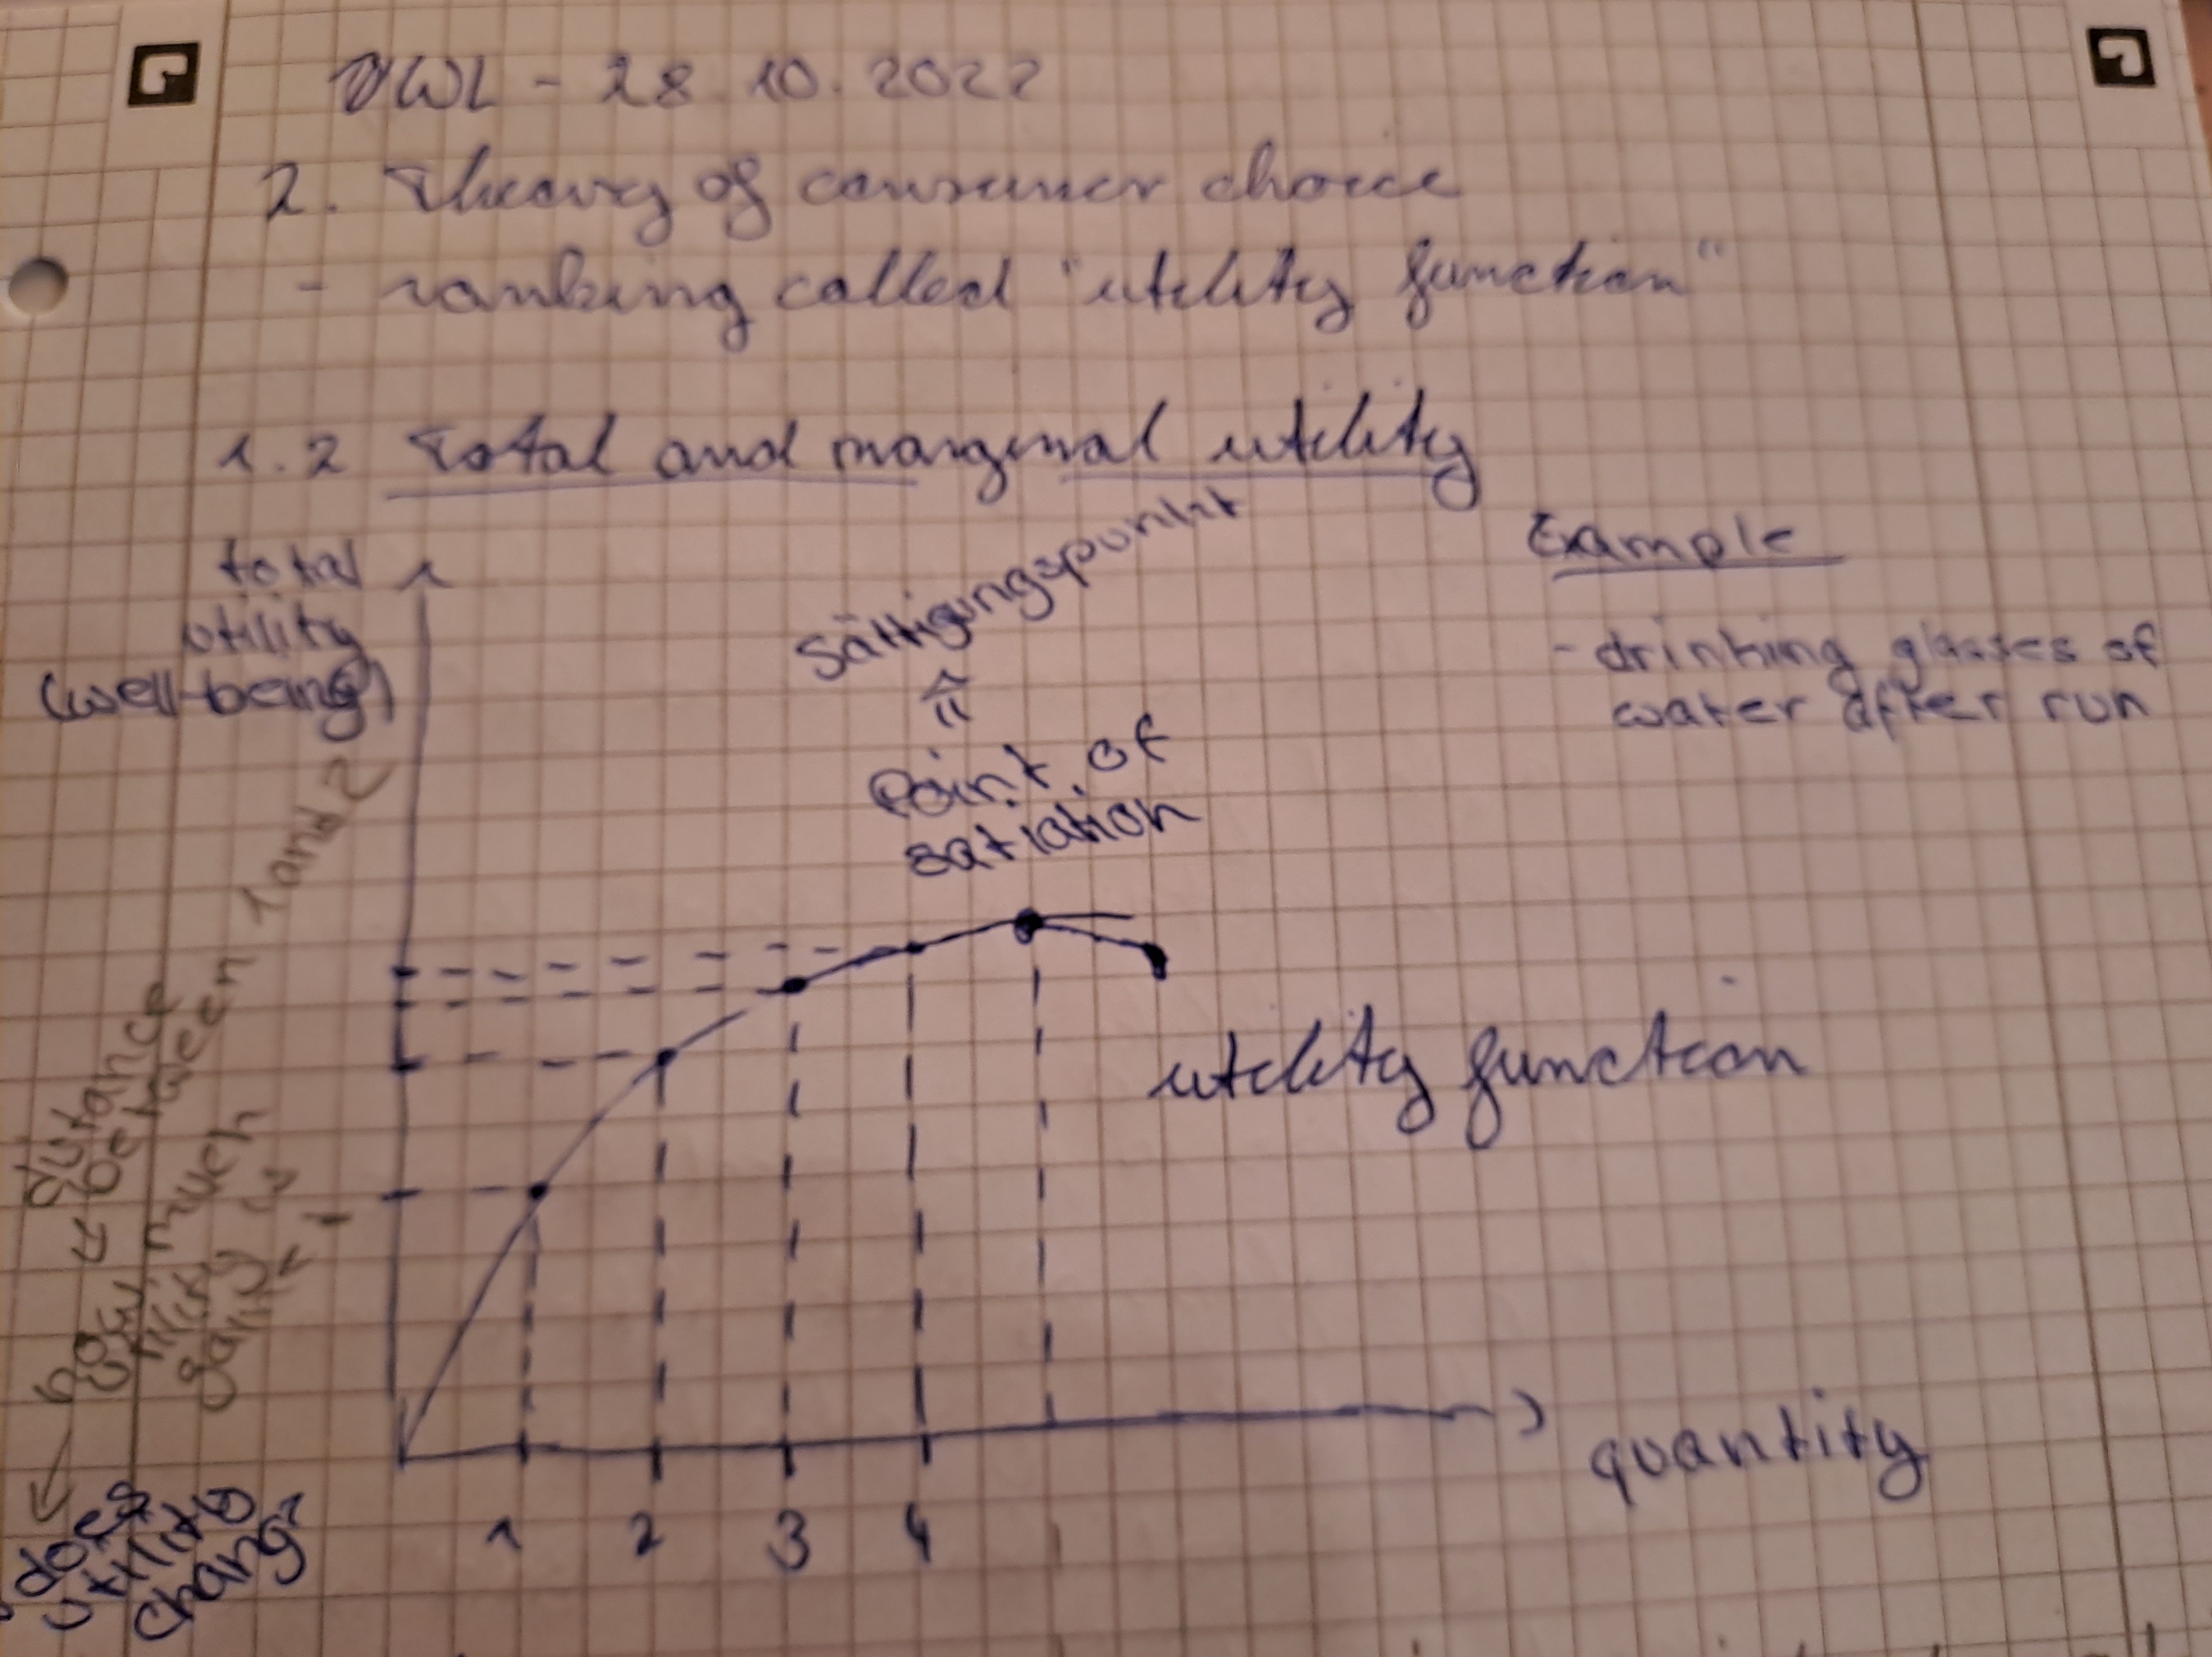 VWL - 28.10.2022
2. Theory of consumer choice
- ranking called "utility function"
1.2 Total and marginal utility
total
utility
(well-being)
Sättigungspunkt
Point of
satiation
Example
- drinking glasses of
water after run
distance
between 1 and 2
how much
utility
gain is
left
utility function
quantity
1 2 3 4
does
utility
change